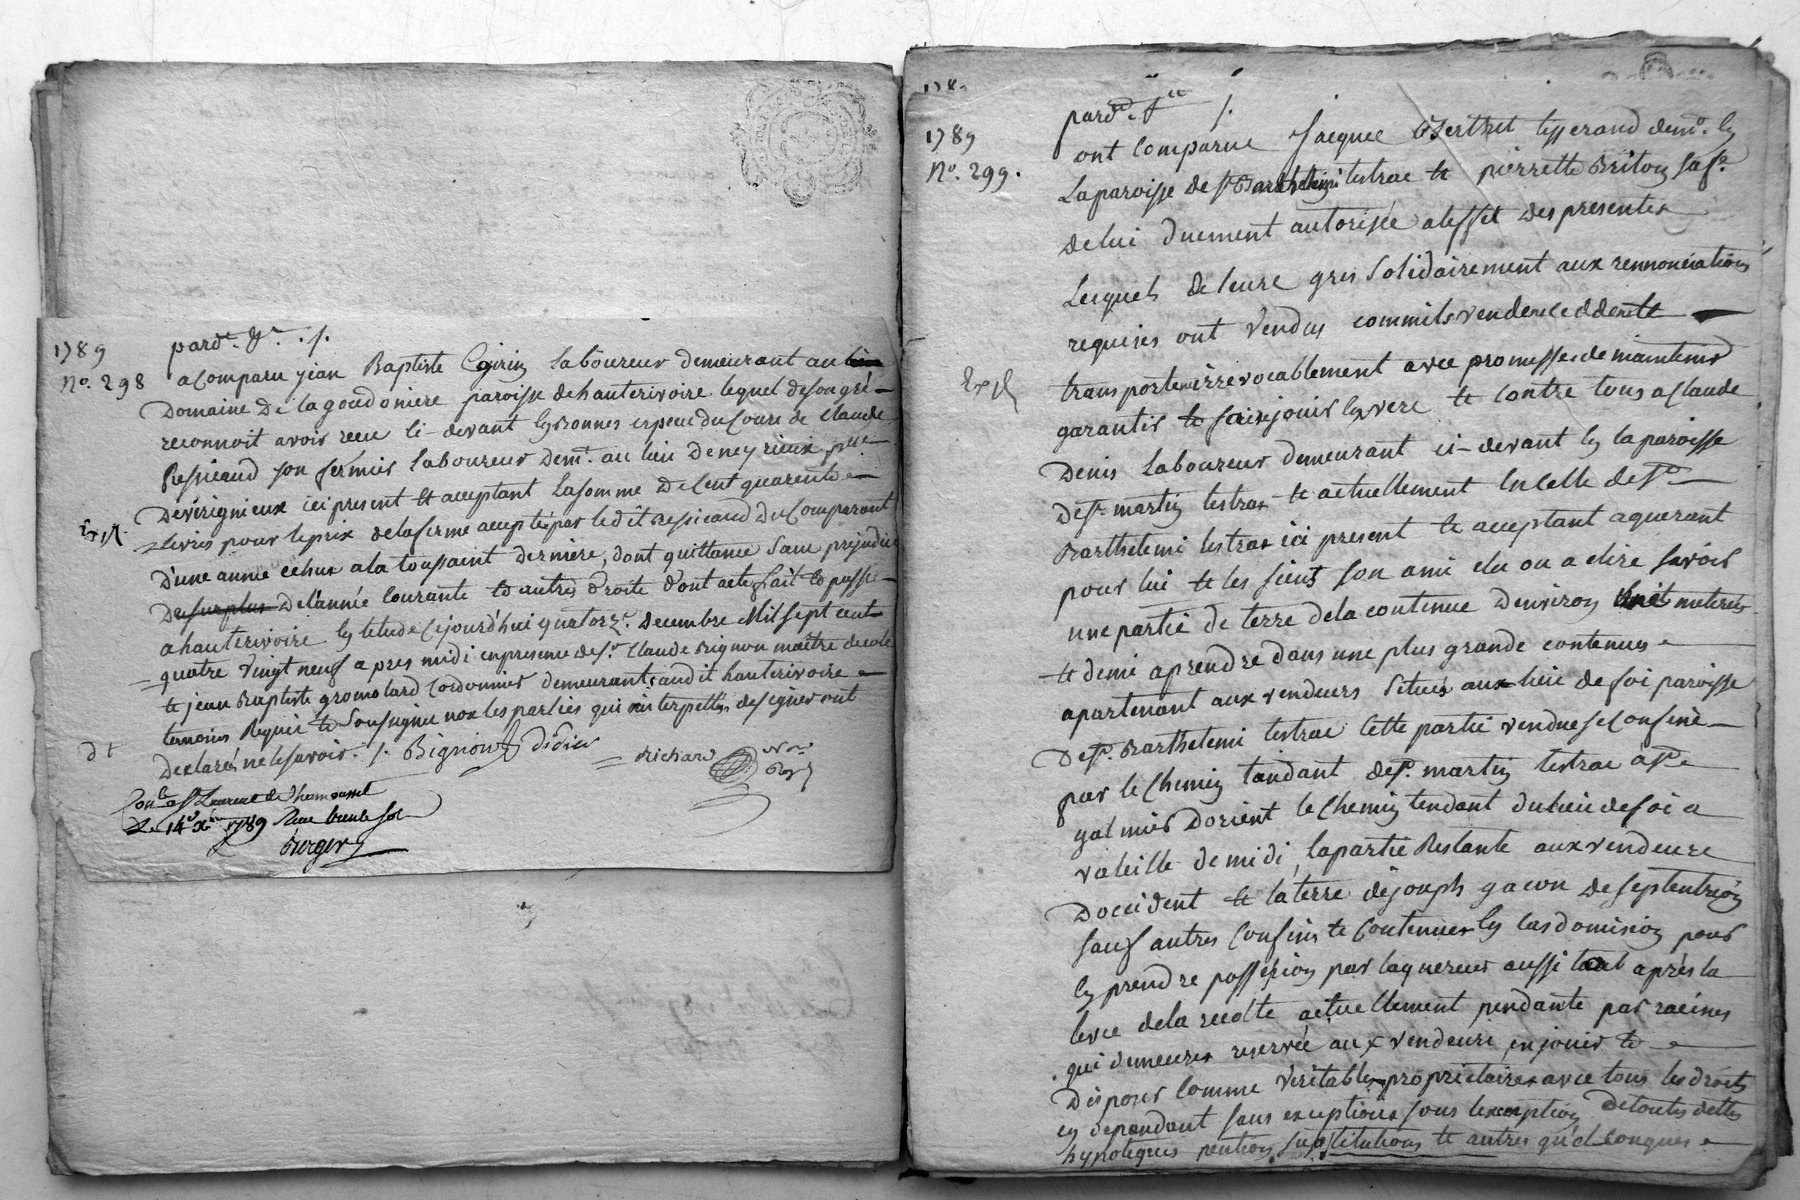 1789
No. 298
pardt. Gr. . /.
a Comparu jean Baptiste laboureur demeurant au
Domaine De la goudoniere paroisse de hauterivoire lequel de son gré
reconnoit avoir recu ci-devant en bonnes especes du Cours de Claude
Ressicaud son fermier laboureur Demt. au lieu De neyrieux psse.
De virignieux ici present et acceptant La somme De Cent quarente
livres pour le prix de la ferme acceptée par le dit Ressicaud Du Comparant
D'une année echue a la toussaint derniere, dont quittance Sans prejudice
Du surplus De l'année Courante et autres droits d'ont acte fait et passé
a hauterivoire en l'etude Cejourd'hui quatorze. Decembre Mil sept cent
quatre vingt neuf apres midi en presence de Sr. Claude Bignon maitre decole
et jean Baptiste gromolard Cordonnier demeurants audit hauterivoire
temoins Requis et Soussignés non les parties qui interpellées de signer ont
Declarées ne le savoir. /. Bignon Didier
Richard
Conlé a St Laurent de Chamousset
Le 14e Xbre 1789 Reçu trente sols
Berger
1789
No. 299.
pardt.
ont Comparu Jacques Berthet tisserand demt. en
La paroisse de St Barthelemi lestrac et pierrette Briton sa fe.
de lui duement autorisée a l'effet des presentes
Lesquels de leurs grés Solidairement aux rennonciations
requises ont vendus comme ils vendent ceddent et
transportent irrevocablement avec promesses de maintenir
garantir et faire jouir envers et contre tous a Claude
Denis Laboureur demeurant ci-devant en la paroisse
de St martin lestrac et actuellement en celle de St
Barthelemi lestrac ici present et acceptant aquerant
pour lui et les siens son ami elu ou a elire savoir
une partie de terre de la contenue d'environ meterés
et demi a prendre dans une plus grande contenue
apartenant aux vendeurs situés au lieu de foi paroisse
De St. Barthelemi lestrac Cette partie vendue se Confine
par le Chemin tandant de St. martin lestrac a St
galmier D'orient le Chemin tendant du lieu de foi a
valeille de midi, la partie Restante aux vendeurs
D'occident et la terre de joseph gacon de septentrion
sauf autres Confins et Contenues en cas d'omision pour
en prendre possesion par laquereur aussi tot après la
levée de la recolte actuellement pendante par racines
qui demeurer reservée aux vendeurs en jouir et
Disposer Comme veritables proprietaires avec tous les droits
en dependant sans exceptions sous lexception De toutes dettes
hypoteques pentions, substitutions et autres quelconques